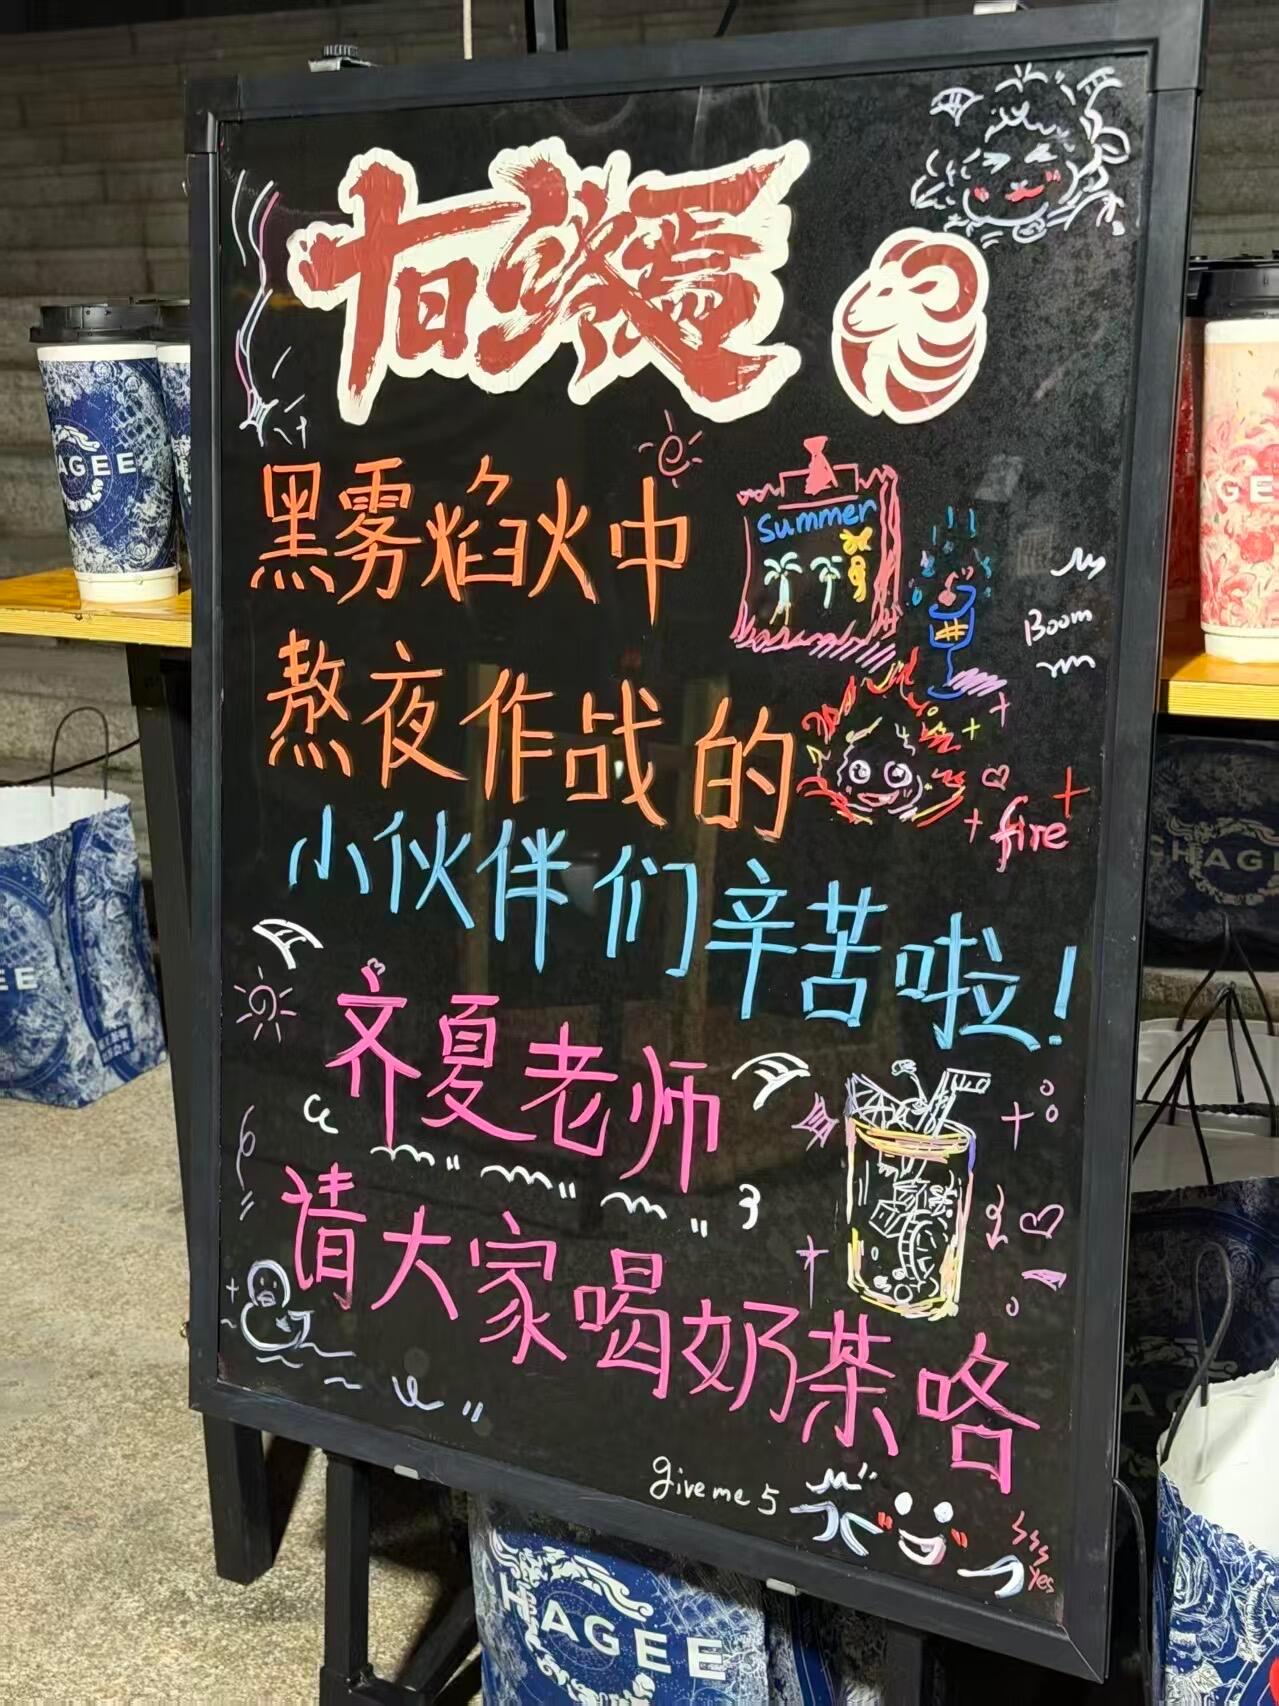 十日终焉
黑雾焰火中
Summer
Boom
熬夜作战的
fire
小伙伴们辛苦啦！
齐夏老师
请大家喝奶茶咯
give me 5
yes
AGEE
GE
CHAGE
EE
CHAGEE